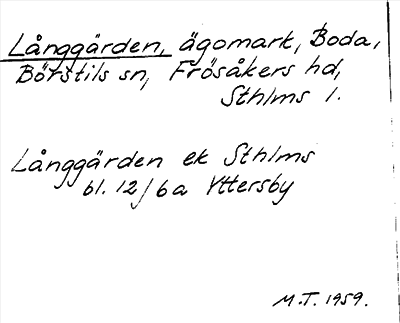 Långgärden, ägomark, Boda,
Börstils sn, Frösåkers hd,
Sthlms l.
Långgärden ek Sthlms
bl. 12/6a Yttersby
M.T. 1959.